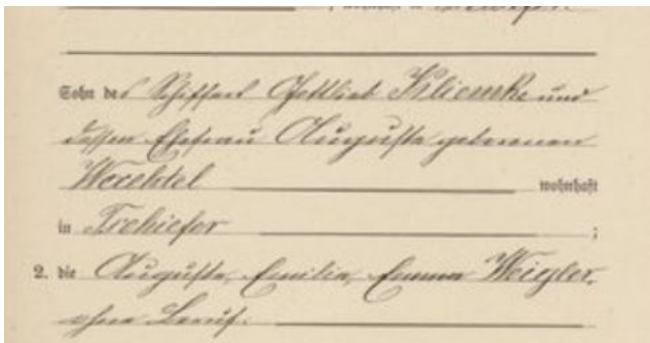 Sohn des Schiffers Gottlieb Kliemke und
dessen Ehefrau Auguste geborenen
Wrechtel wohnhaft
in Trchiefer ;
2. die Auguste, Emilie, Emma Weigler,
ohne Beruf.